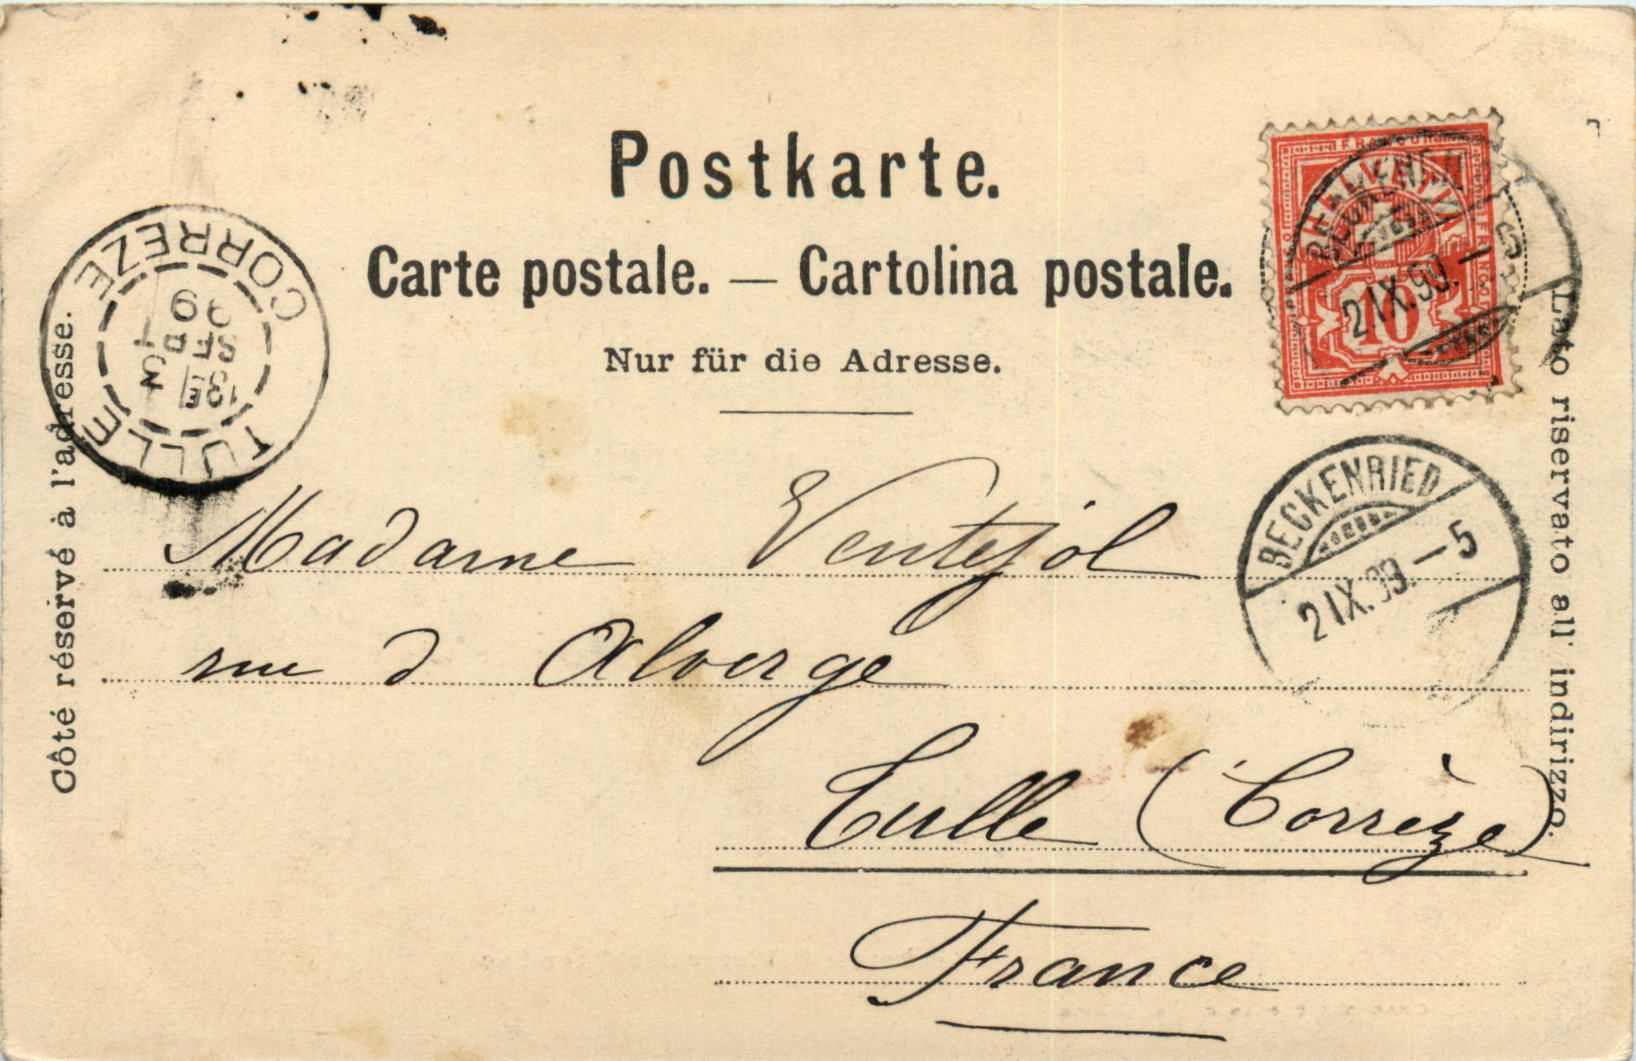 Postkarte.
Carte postale. — Cartolina postale.
Nur für die Adresse.
Côté réservé à l'adresse.
Lato riservato all' indirizzo.
CORREZE
TULLE
10
2 IX. 99. – 5
BECKENRIED
2 IX. 99. – 5
Madame Ventejol
rue d Alverge
Tulle (Corrèze)
France